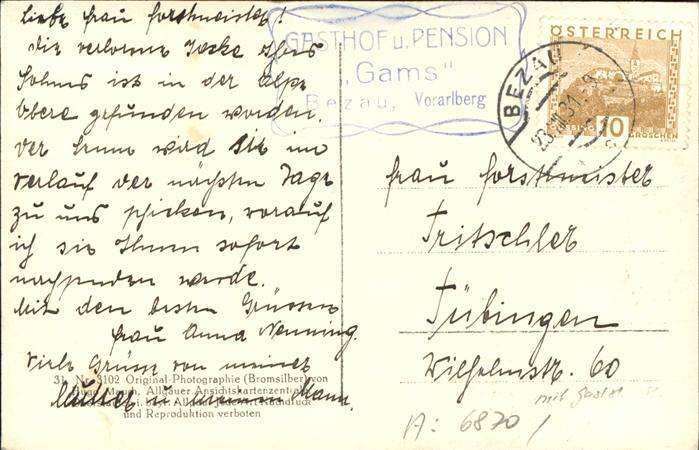 Liebe Frau Forstmeister!
Die verlorene Jacke Ihres
Sohnes ist in der Alpe
Obere gefunden worden.
Der Senn wird sie im
Verlauf der nächsten Tage
zu uns schicken, worauf
ich sie Ihnen sofort
nachsenden werde.
Mit den besten Grüssen
Frau Anna Nenning.
Viele Grüsse von meiner
Mutter u. Mann.
31 Nr. 3102 Original-Photographie (Bromsilber) von
Allgäuer Ansichtskartenzentrale
und Reproduktion verboten
GASTHOF u. PENSION
„Gams"
Bezau, Vorarlberg
BEZAU
23.VIII.31
ÖSTERREICH
10
GROSCHEN
Frau Forstmeister
Fritschler
Tübingen
Wilhelmstr. 60
A: 6820 /